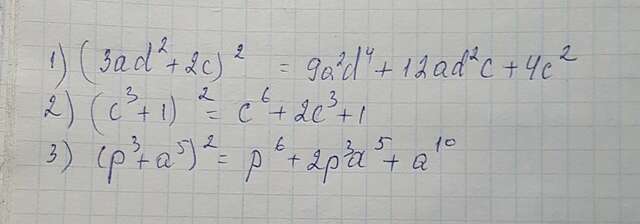 1) (3ad² + 2c)² = 9a²d⁴ + 12ad²c + 4c²
2) (c³ + 1)² = c⁶ + 2c³ + 1
3) (p³ + a⁵)² = p⁶ + 2p³a⁵ + a¹⁰